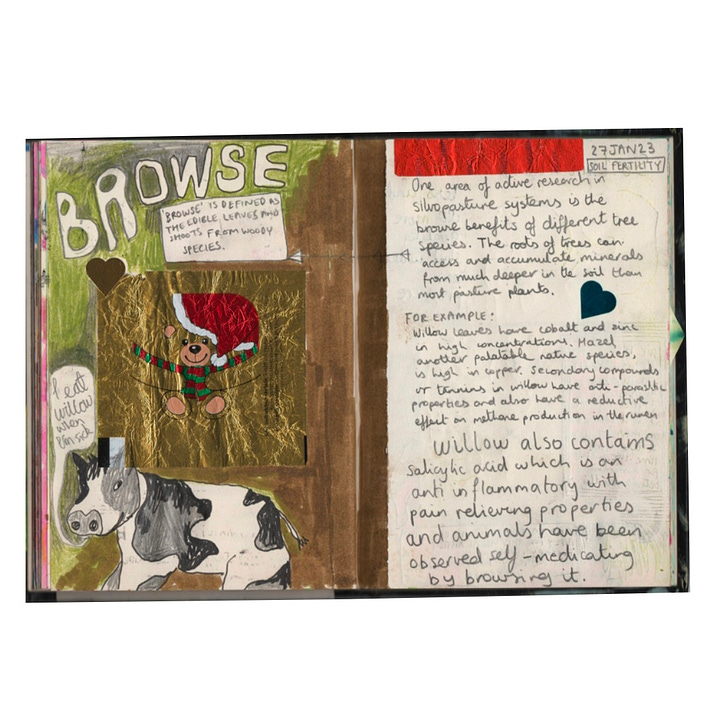 BROWSE
'BROWSE' IS DEFINED AS
THE EDIBLE LEAVES AND
SHOOTS FROM WOODY
SPECIES.
I eat
willow
when
I'm sick
27 JAN 23
SOIL FERTILITY
One area of active research in
silvopasture systems is the
browse benefits of different tree
species. The roots of trees can
access and accumulate minerals
from much deeper in the soil than
most pasture plants.
FOR EXAMPLE:
Willow leaves have cobalt and zinc
in high concentrations. Hazel
another palatable native species,
is high in copper. Secondary compounds
or tannins in willow have anti-parasitic
properties and also have a reductive
effect on methane production in the rumen
Willow also contains
salicylic acid which is an
anti inflammatory with
pain relieving properties
and animals have been
observed self-medicating
by browsing it.